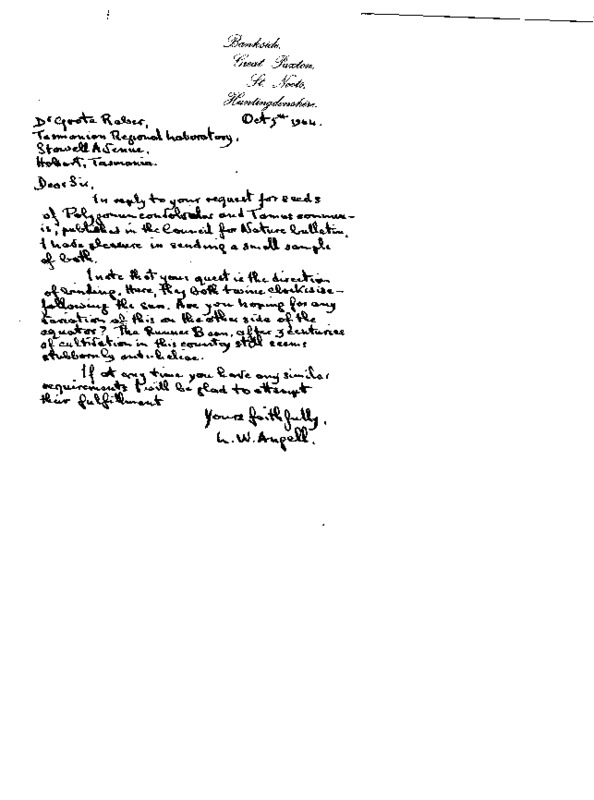 Bankside,
Great Paxton,
St. Neots,
Huntingdonshire.
Oct 5th 1964.
Dr Greta Raber,
Tasmanian Regional Laboratory,
Stowell Avenue,
Hobart, Tasmania.
Dear Sir,
In reply to your request for seeds
of Polygonum convolvulus and Tamus commun-
is, published in the Council for Nature bulletin,
I have pleasure in sending a small sample
of both.
I note that your quest is the direction
of winding. Here, they both twine clockwise -
following the sun. Are you hoping for any
variation of this on the other side of the
equator? The Runner Bean, after 3 centuries
of cultivation in this country still seems
stubbornly anti-
If at any time you have any similar
requirements I will be glad to attempt
their fulfillment
Yours faithfully,
L. W. Angell.